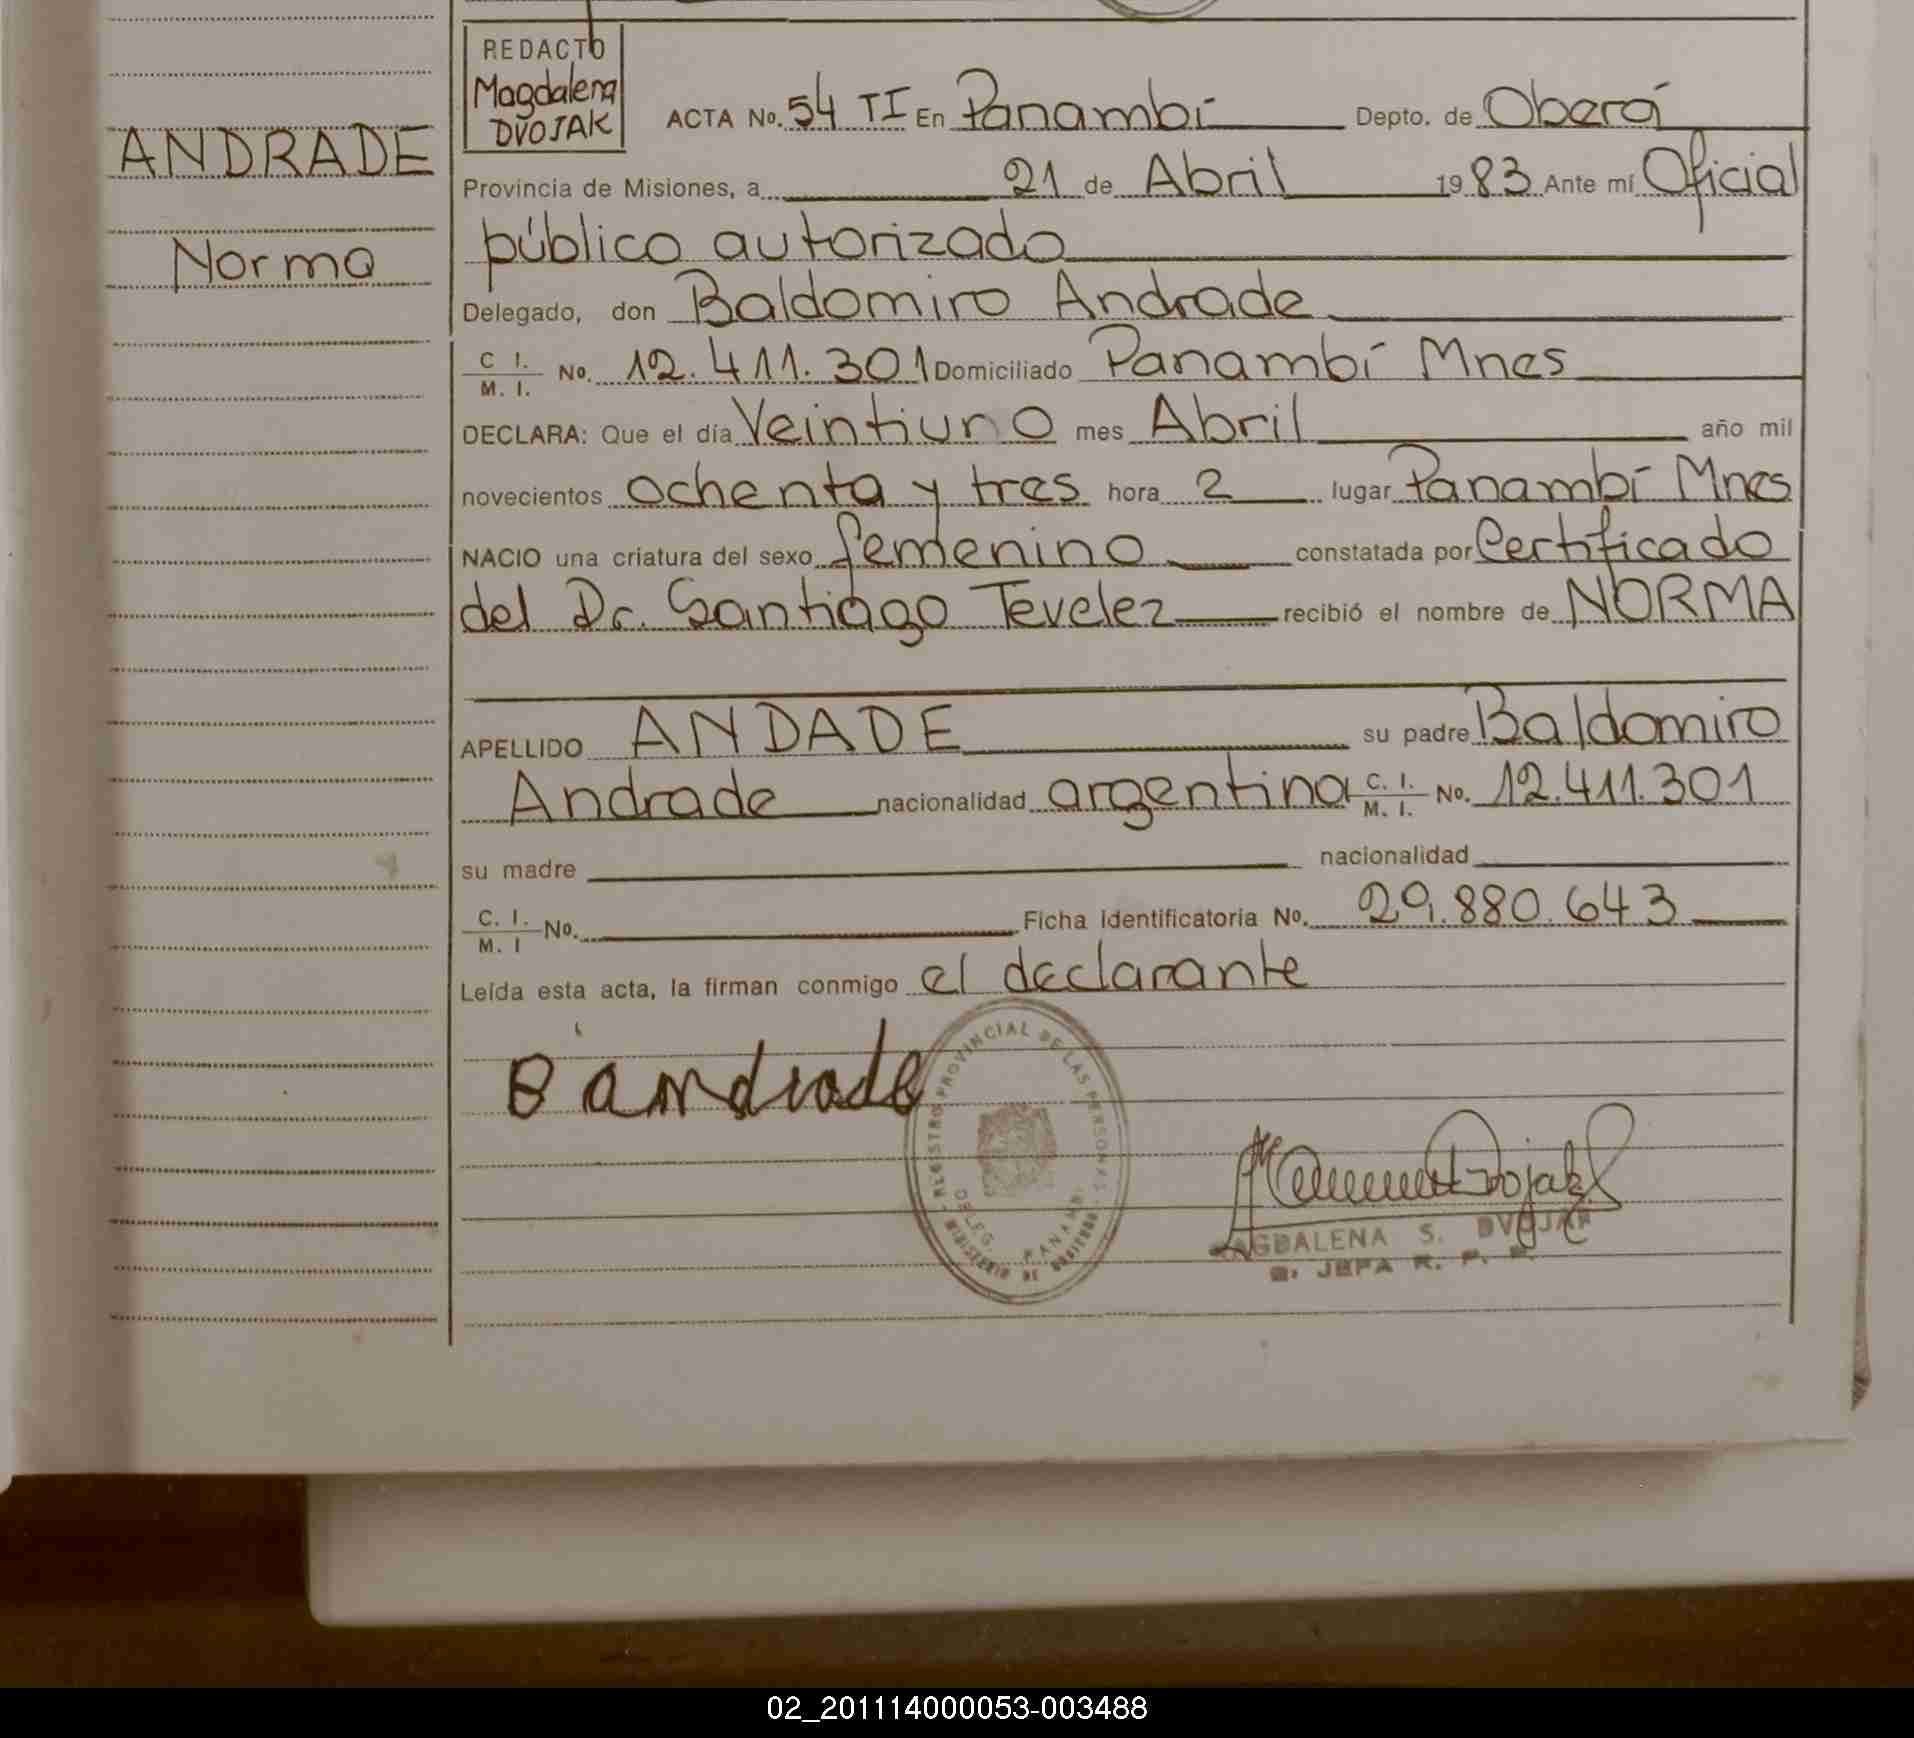 REDACTO
Magdalena
DVOJAK
ANDRADE
Norma
ACTA No. 54 TI En Panambí Depto. de Oberá
Provincia de Misiones, a 21 de Abril 1983 Ante mí Oficial
público autorizado
Delegado, don Baldomiro Andrade
C I. / M. I. No. 12.411.301 Domiciliado Panambí Mnes
DECLARA: Que el día Veintiuno mes Abril año mil
novecientos ochenta y tres hora 2 lugar Panambí Mnes
NACIO una criatura del sexo femenino constatada por Certificado
del Dr. Santiago Tevelez recibió el nombre de NORMA
APELLIDO ANDADE su padre Baldomiro
Andrade nacionalidad argentina C. I. / M. I. No. 12.411.301
su madre nacionalidad
C. I. / M. I No. Ficha Identificatoria No. 29.880.643
Leída esta acta, la firman conmigo el declarante
B andrade
REGISTRO PROVINCIAL DE LAS PERSONAS
DELEG. PANAMBI
MINISTERIO DE GOBIERNO
MAGDALENA S. DVOJAK
JEFA R. P. P.
02_201114000053-003488